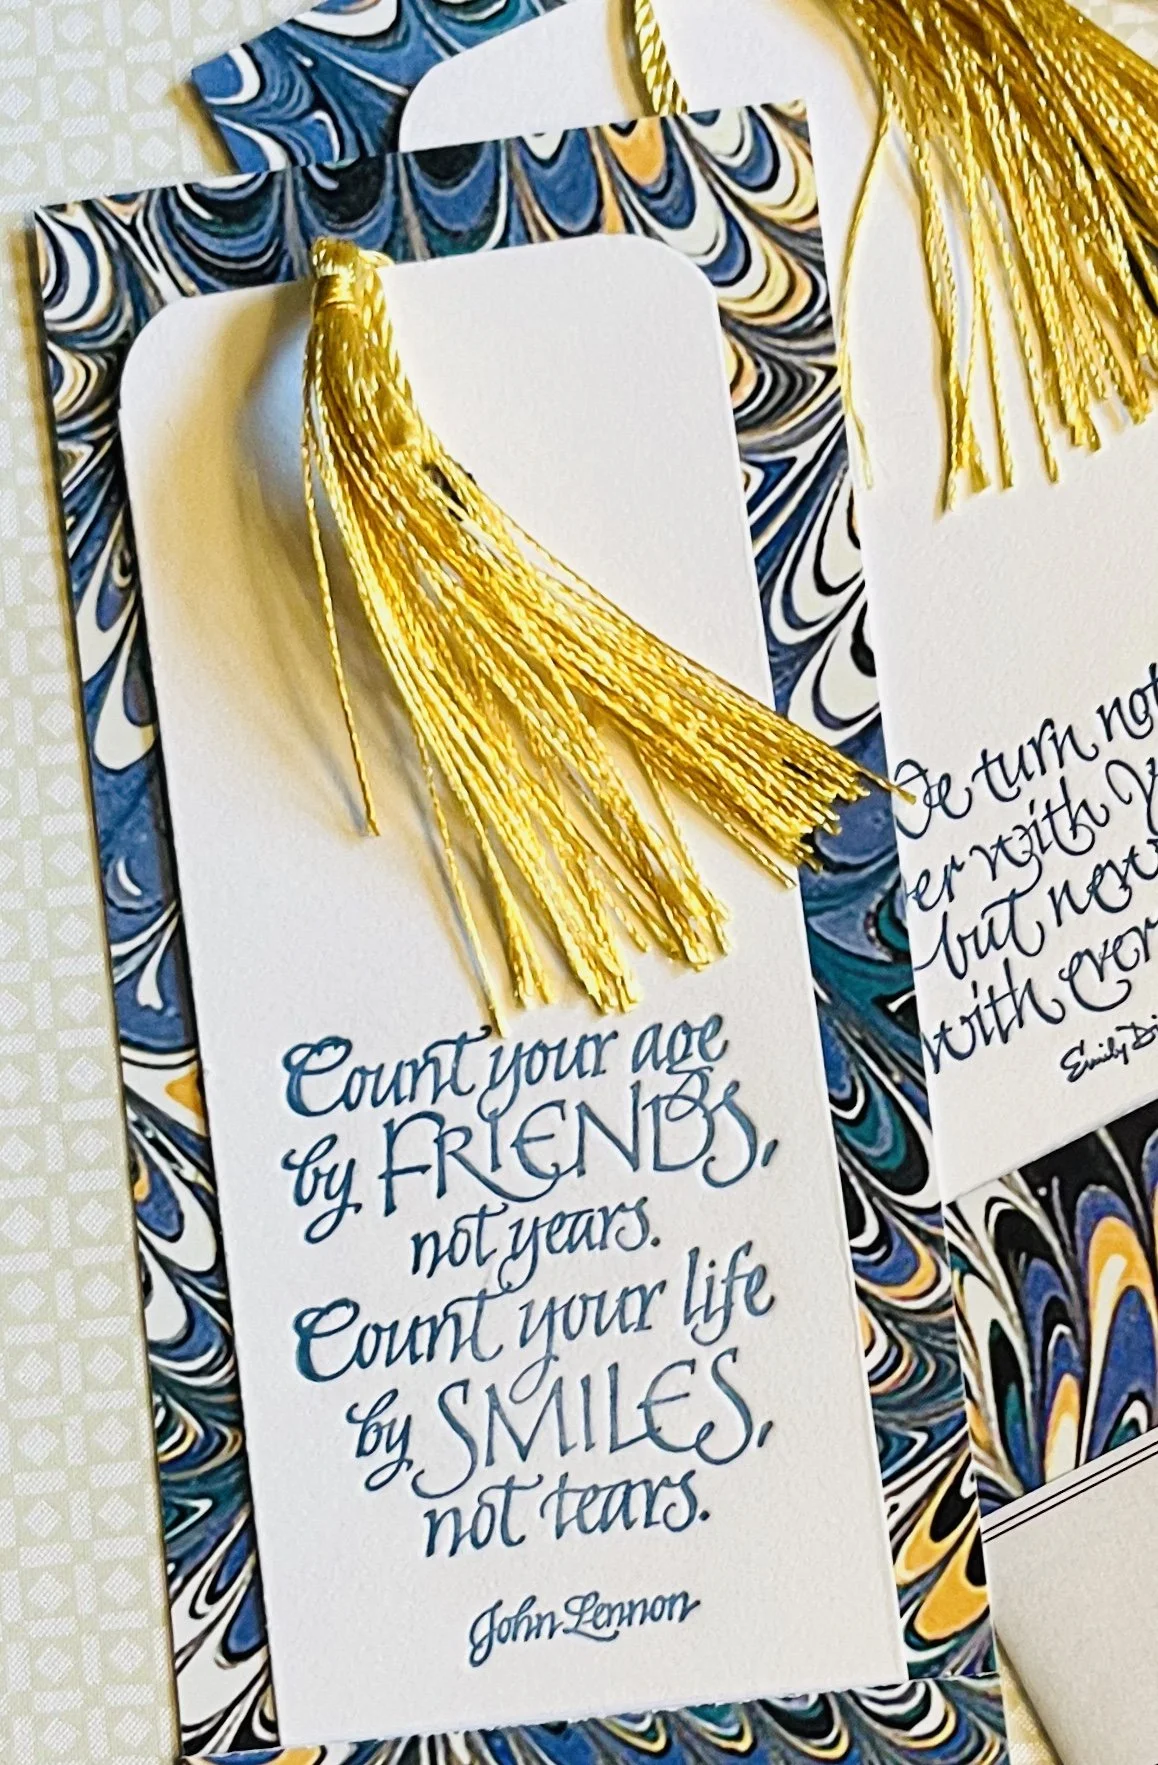 Count your age
by FRIENDS,
not years.
Count your life
by SMILES,
not tears.
John Lennon
We turn not
er with
but new
with ever
Emily Di